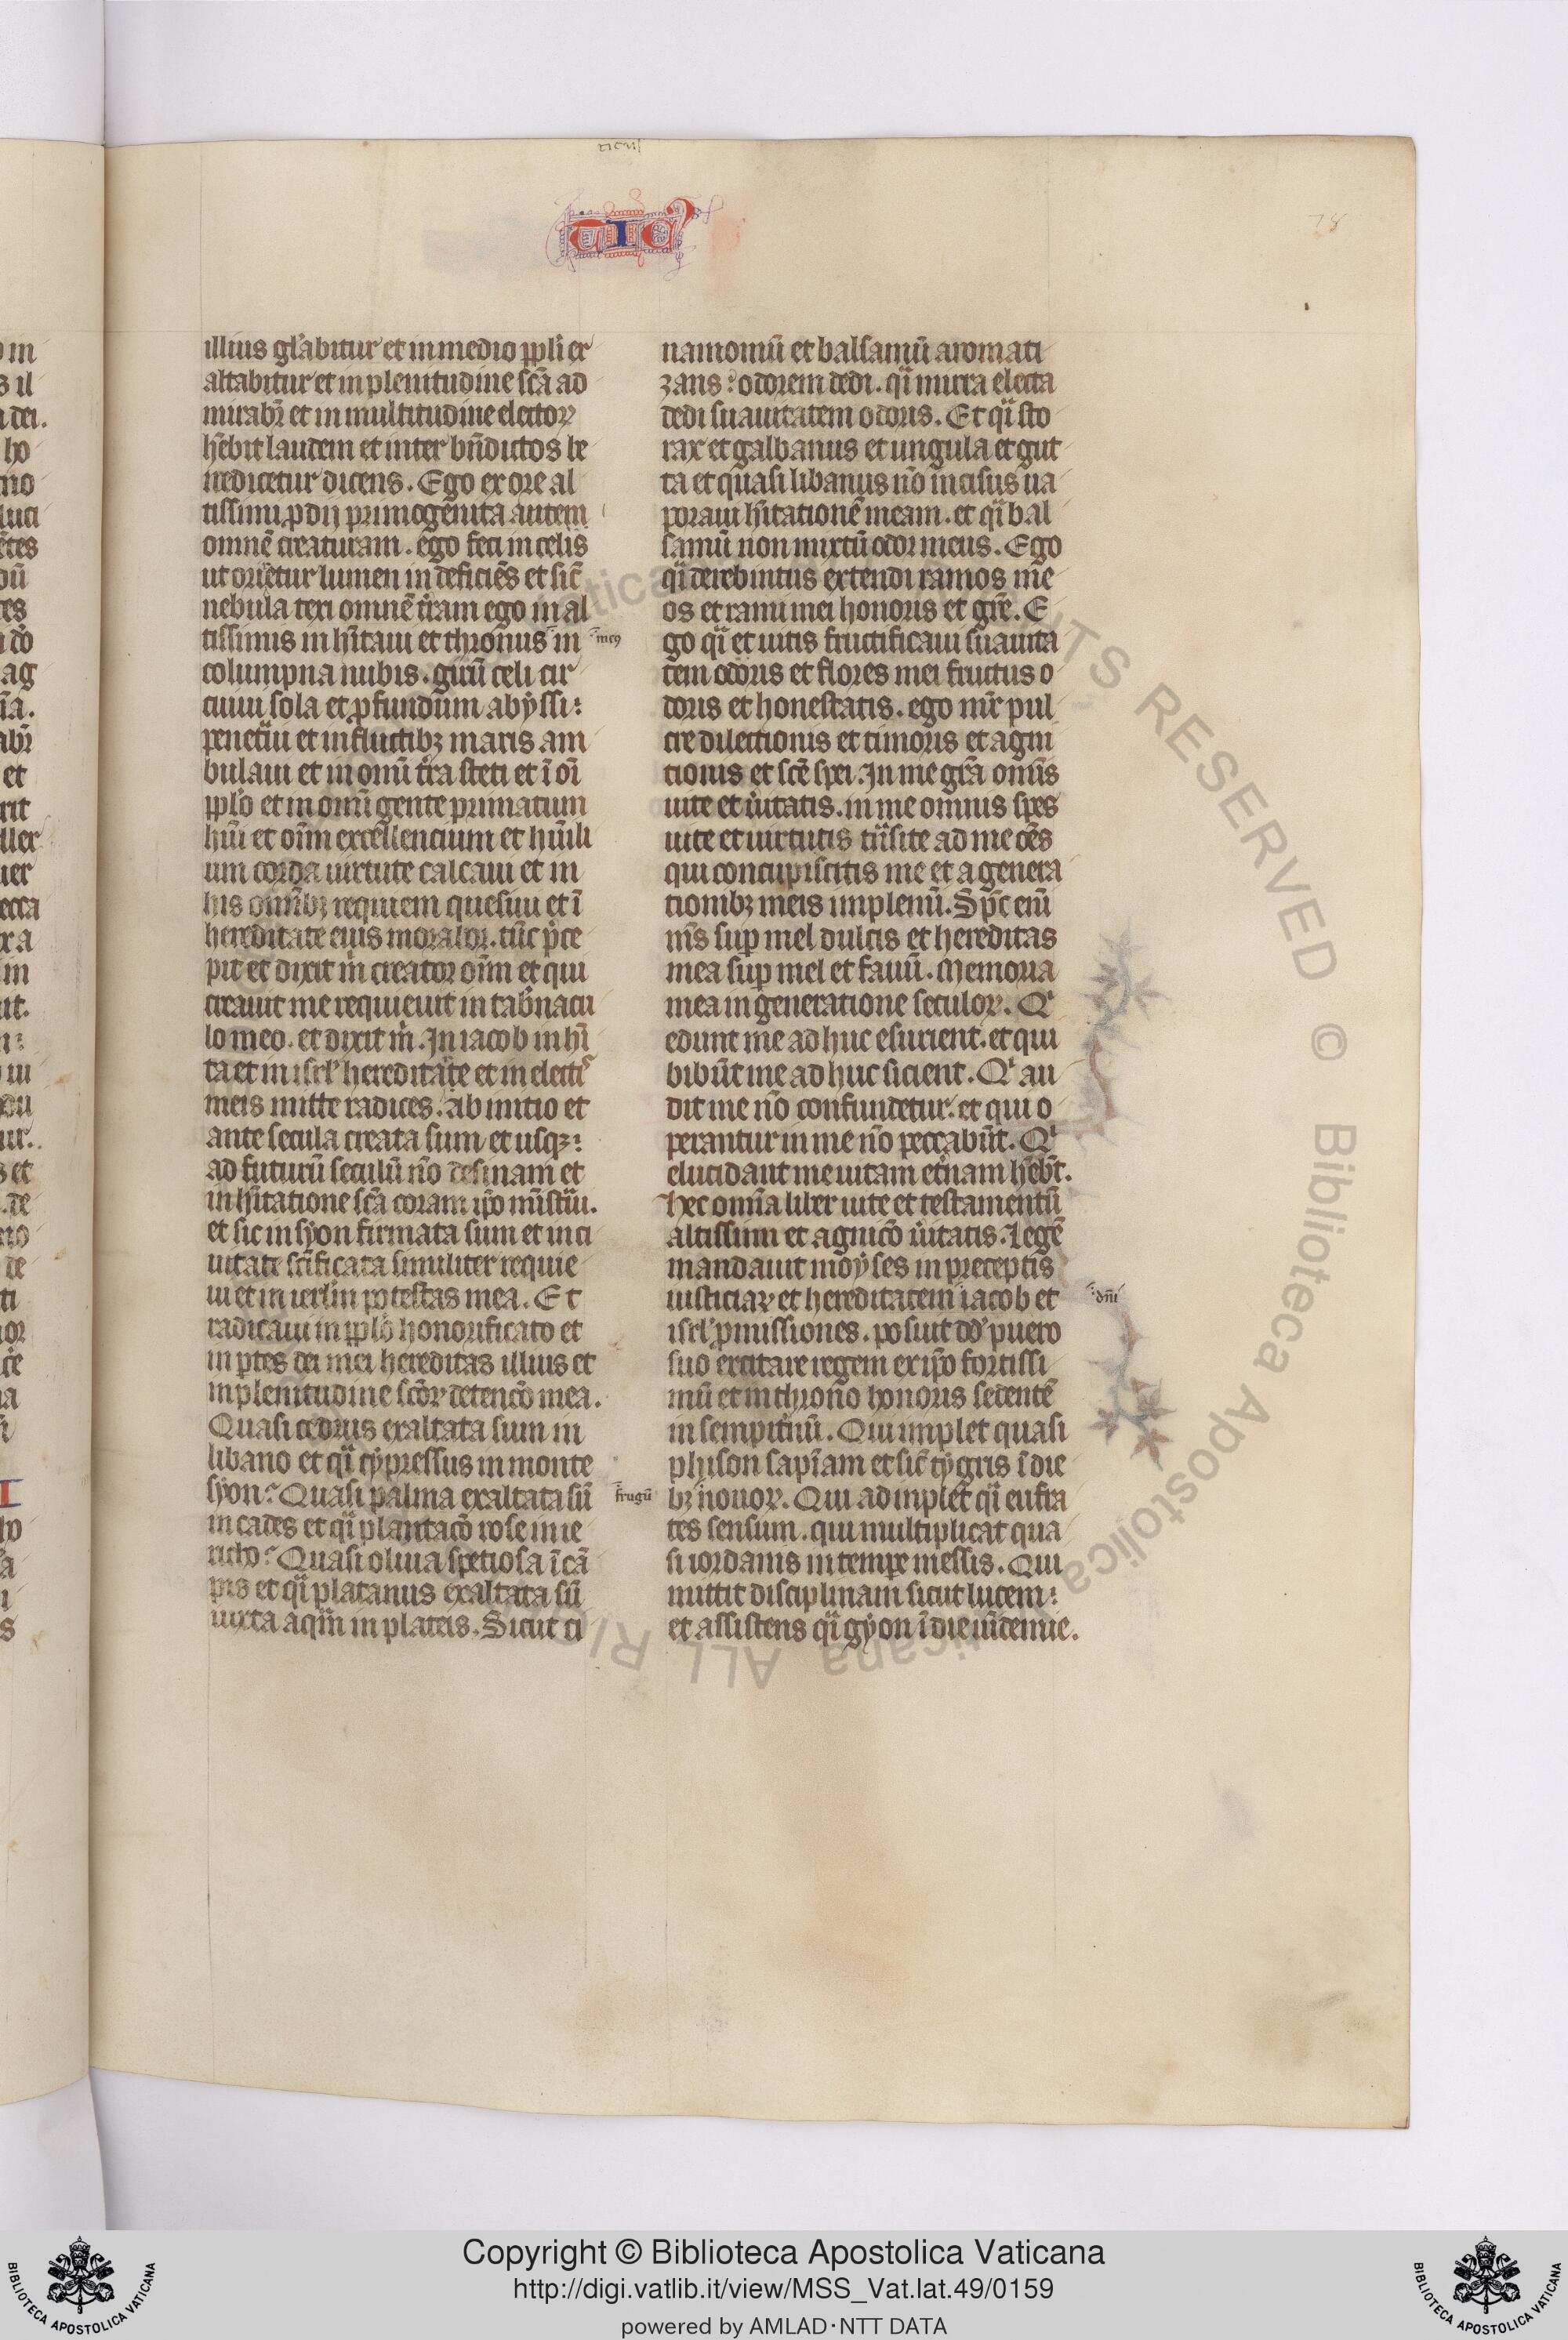 ticus
TIC'
78
illius gl'abitur et in medio ppl'i ex
altabitur et in plenitudine sc̄a ad
mirabr̄ et in multitudine electoꝝ
hēbit laudem et inter bn̄dictos be
nedicetur dicens. Ego ex ore al
tissimi ꝓdij primogēnita autem
omnē creaturam. ego feci in celis
ut oriret̄ur lumen in deficiēs et sic̄
nebula texi omnē t̄ram ego in al
tissimis in hītaui et thronus in
mēꝰ
columpna nubis. girū celi cir
cuiui sola et ꝓfundum abyssi:
penet̄ui et in fluctibꝫ maris am
bulaui et in omī t̄ra steti et ī oī
ppl'o et in omī gente primatum
hūi et oīm excellencium et hūili
um corda uirtute calcaui et in
his omībꝫ requiem quesiui et ī
hereditate eius moralor. tūc p̄ce
pit et dixit m̄ creator oīm et qui
creauit me requieuit in tab̄nacu
lo meo. et dixit m̄. In iacob in hī
ta et in isrl' hereditare et in electis
meis mitte radices. Ab initio et
ante secula creata sum et usqꝫ:
ad futurū seculū nō desinam et
in hītatione sc̄a coram ip̄o mīst̄ui.
et sic in syon firmata sum et in ci
uitate sc̄ificata similiter requie
ui et in ierl'm potestas mea. Et
radicaui in ppl'o honorificato et
in ptes dei mei hereditas illius et
in plenitudine sc̄oꝝ detenc̄o mea.
Quasi cedrus exaltata sum in
libano et qī cypressus in monte
syon: Quasi palma exaltata sū
in cades et qī plantac̄o rose in ie
richo: Quasi oliua speciosa ī cā
frugū
pis et qī platanus exaltata sū
iuxta aqm̄ in plateis. Sicut ci
namomū et balsamū aromati
zans: odorem dedi. qī mirra electa
dedi suauitatem odoris. Et qī sto
rax et galbanus et ungula et gut
ta et quasi libanus nō incisus ua
poraui hītationē meam. et qī bal
samū non mixtū odor meus. Ego
qī derebintus extendi ramos me
os et rami mei honoris et gr̄e. E
go qī et uitis fructificaui suauita
tem odoris et flores mei fructus o
doris et honestatis. ego mr̄ pul
cre dilectionis et timoris et agni
tionis et sc̄e spei. In me gr̄a omīs
uite et uitatis. in me omnis spes
uite et uirtutis t̄nsite ad me oēs
qui concupiscitis me et a genera
tionibꝫ meis implemī. Sp̄c enī
m̄s sup mel dulcis et hereditas
mea sup mel et fauū. Memoria
mea in generatione seculoꝝ. Qi
edunt me ad huc esurient. et qui
bibūt me ad huc sicient. Qi au
dit me nō confundetur. et qui o
perantur in me nō peccabūt. Qi
elucidant me uitam et̄nam hēbt̄.
Hec omīa liber uite et testamentū
altissimi et agnic̄o ūitatis. Legē
mandauit moyses in preceptis
iusticiaꝝ et hereditatem iacob et
dn̄i
isrl' ꝓmissiones. posuit dd' puero
suo excitare regem ex ip̄o fortissi
mū et in throno honoris sedentē
in sempit̄nū. Qui implet quasi
phison sapīam et sic̄ tygris ī die
bꝫ nouoꝝ. Qui adinplet qī eufra
tes sensum. qui multiplicat qua
si iordanis in tempe messis. Qui
mittit disciplinam sicut lucem:
et assistens qī gyon ī die uīdemie.
Copyright © Biblioteca Apostolica Vaticana
http://digi.vatlib.it/view/MSS_Vat.lat.49/0159
powered by AMLAD·NTT DATA